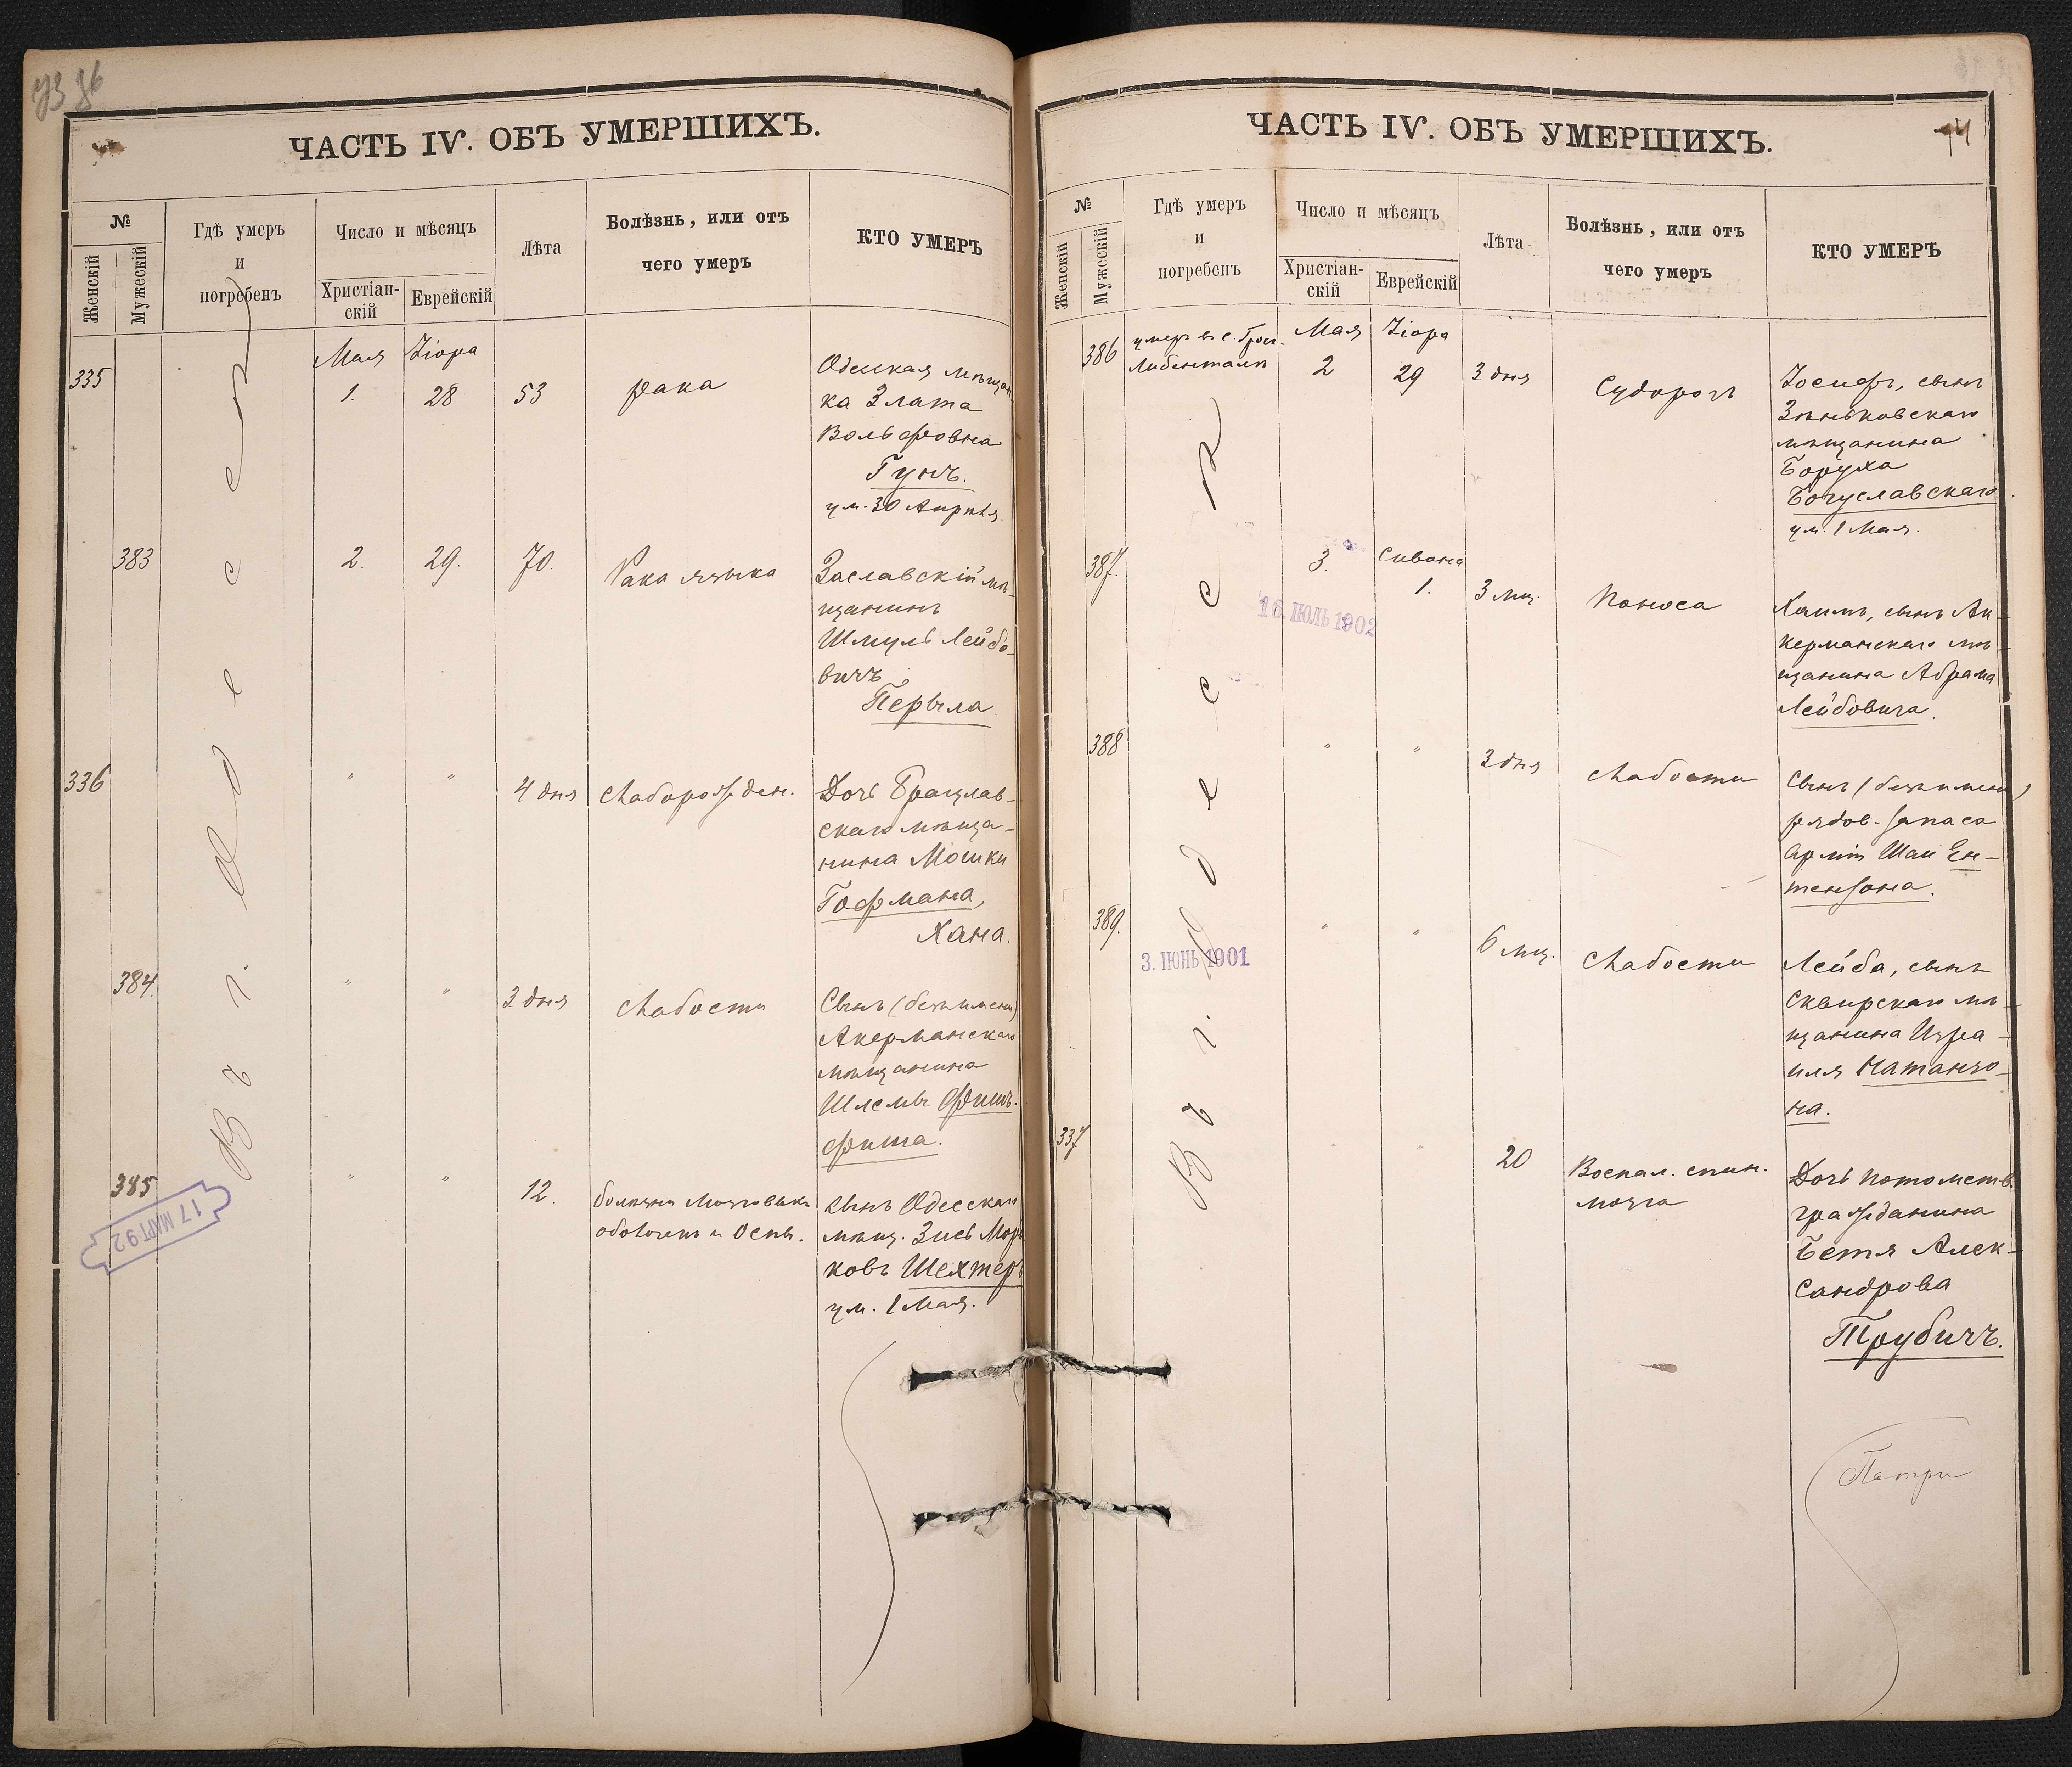 ЧАСТЬ IV. ОБЪ УМЕРШИХЪ.
№
Женскій
Мужескій
Гдѣ умеръ
и
погребенъ
Число и мѣсяцъ
Христіан-
скій
Еврейскій
Лѣта
Болѣзнь, или отъ
чего умеръ
КТО УМЕРЪ
Въ г. Одессѣ
Мая Ііора
335 1. 28 53 рака
Одесская мѣщан-
ка Злата
Вольфовна
Гунъ.
ум. 30 Апрѣля.
383 2. 29. 70. Рака языка
Заславскій мѣ-
щанинъ
Шмуль Лейбо-
вичъ
Перыла.
336 " " 4 дня Слаборожден.
Дочь Брацлав-
скаго мѣща-
нина Мошки
Гофмана,
Хана.
384. " " 3 дня Слабости
Сынъ (безъ имени)
Акерманскаго
мѣщанина
Шлемы Фиш-
фита.
385 " " 12.
болѣзни мозговыхъ
оболочекъ и Оспы.
Сынъ Одесскаго
мѣщ. Зись Мор-
ковъ Шехтеръ
ум. 1 Мая.
17 МАРТ 92
ЧАСТЬ IV. ОБЪ УМЕРШИХЪ.
№
Женскій
Мужескій
Гдѣ умеръ
и
погребенъ
Число и мѣсяцъ
Христіан-
скій
Еврейскій
Лѣта
Болѣзнь, или отъ
чего умеръ
КТО УМЕРЪ
Въ г. Одессѣ
386 умеръ въ с. Грос-
Либенталѣ
Мая Ііора
2 29 3 дня Судорогъ
Іосифъ, сынъ
Зѣньковскаго
мѣщанина
Боруха
Богуславскаго.
ум. 1 Мая.
387. 3. Сивона
1. 3 мц. Поноса
16. ІЮЛЬ 1902
Хаимъ, сынъ Ак-
керманскаго мѣ-
щанина Абрама
Лейбовича.
388 " " 3 дня Слабости
Сынъ (безъ имени)
рядов. запаса
арміи Шаи Ен-
тензона.
389. " " 6 мц. Слабости
3. ІЮНЬ 1901
Лейба, сынъ
Сквирскаго мѣ-
щанина Изра-
иля Натанзо-
на.
337 " " 20
Воспал. спин.
мозга
Дочь потомств.
гражданина
Бетя Алек-
сандрова
Трубичъ.